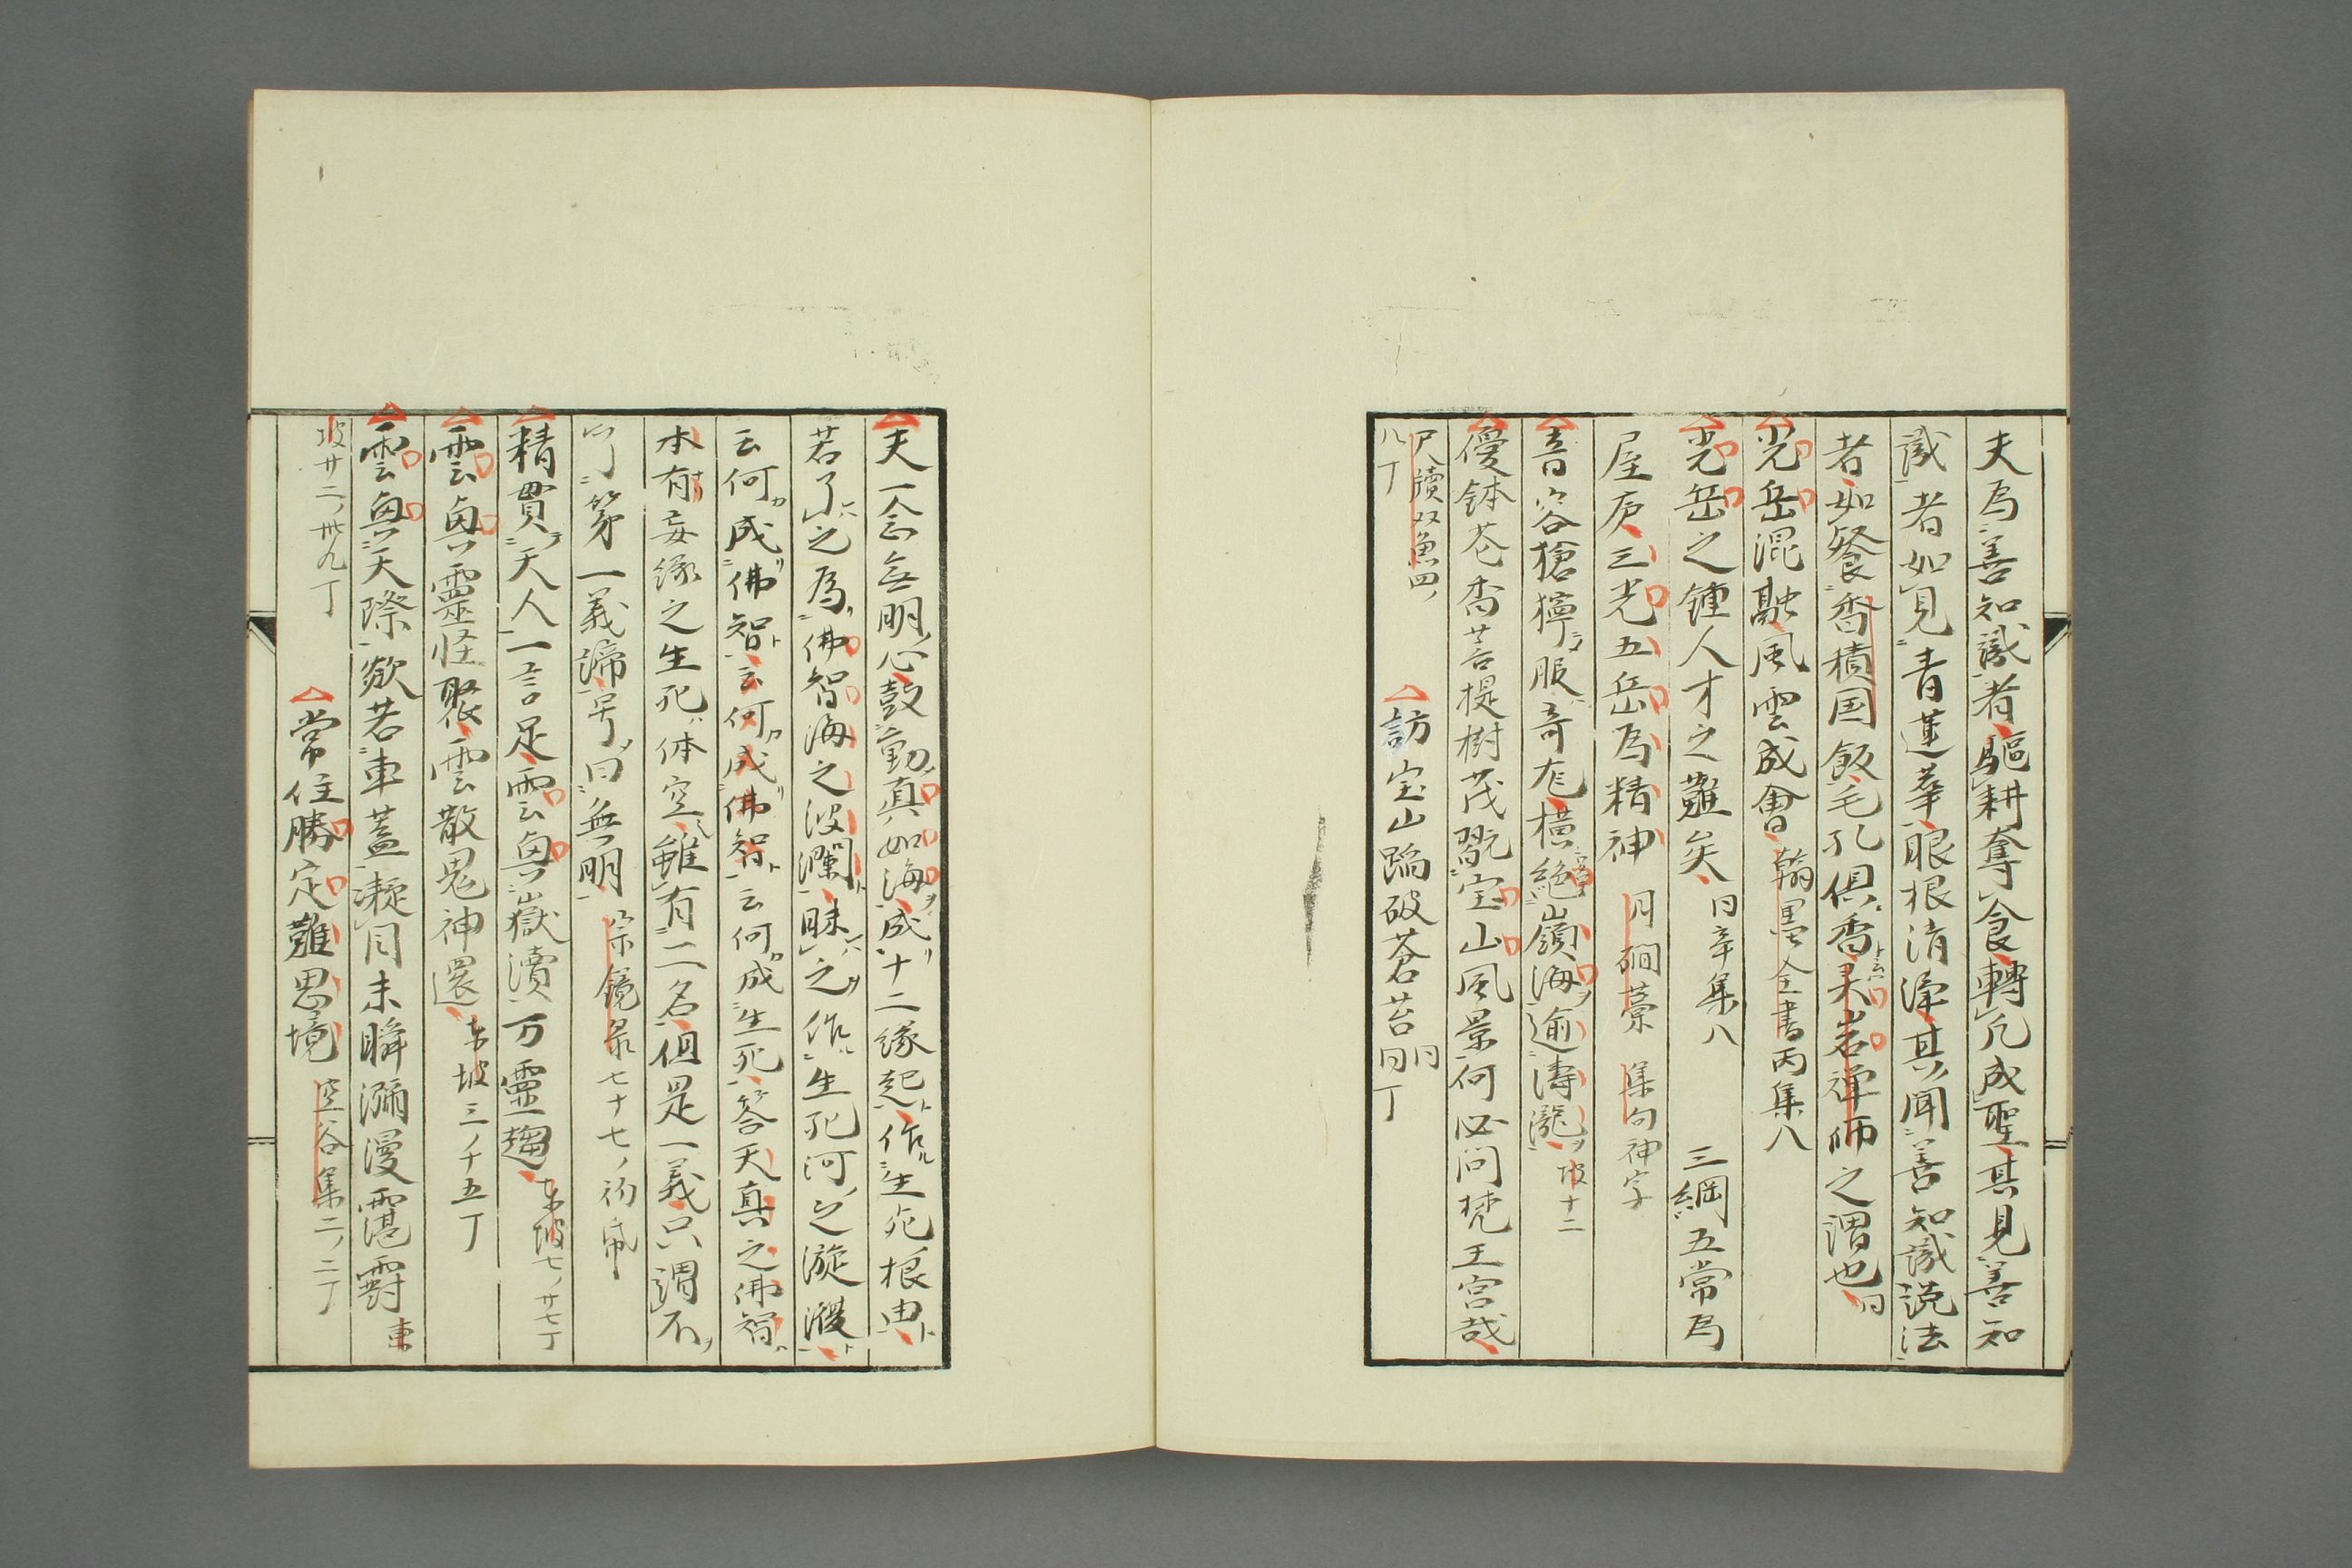 夫為善知識者驅耕奪食轉凡成聖其見善知
識者如見青蓮華眼根清淨其聞善知識説法
者如餐香積国飯毛孔俱香杲岩禅師之謂也同
光岳混融風雲成會翰墨全書丙集八
光岳之鍾人才之難矣同辛集八 三綱五常為
屋庐三光五岳為精神月磵藁集句神字
音容獊獰服奇尨橫絶嶺海逾濤瀧坡十二
優鉢花香菩提樹茂翫宝山風景何必問梵王宮哉
尺牘双魚四八丁 訪宝山蹈破蒼苔同同丁
夫一念無明心鼓動真如海成十二緣起作生死根由
若了之為佛智海之波瀾昧之作生死河之漩澓
云何成佛智云何成佛智云何成生死答天真之佛智
本有妄緣之生死体空雖有二名但是一義只謂不
了第一義諦号曰無明宗鏡录七十七初帋
精貫天人一言足雲輿嶽瀆万靈趨东坡七廿七丁
雲輿靈怪聚雲散鬼神還东坡三十五丁
雲輿天際欻若車蓋凝目未瞬瀰漫霮䨴東
坡廿二卅九丁 常住勝定難思境空谷集二二丁